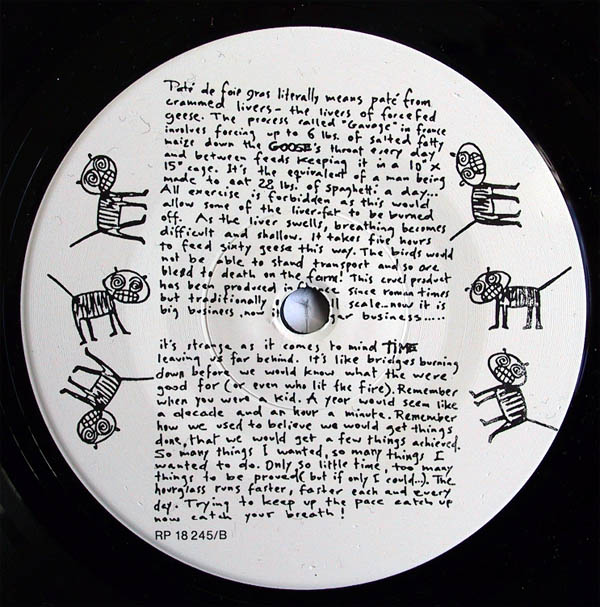 Paté de foie gras literally means paté from
crammed livers - the livers of forcefed
geese. The process called "Gavage" in france
involves forcing up to 6 lbs. of salted fatty
maize down the GOOSE's throat every day
and between feeds keeping it in a 10" x
15" cage. It's the equivalent of a man being
made to eat 28 lbs. of spaghetti a day...
All exercise is forbidden as this would
allow some of the liver-fat to be burned
off. As the liver swells, breathing becomes
difficult and shallow. It takes five hours
to feed sixty geese this way. The birds would
not be able to stand transport and so are
bleed to death on the farm! This cruel product
has been produced in since roman times
but traditionally scale... now it is
big business, now it business.....
it's strange as it comes to mind TIME
leaving us far behind. It's like bridges burning
down before we would know what the were
good for (or even who lit the fire). Remember
when you were a kid. A year would seem like
a decade and an hour a minute. Remember
how we used to believe we would get things
done, that we would get a few things achieved.
So many things I wanted, so many things I
wanted to do. Only so little time, too many
things to be proved (but if only I could...). The
hourglass runs faster, faster each and every
day. Trying to keep up the pace catch up
now catch your breath!
RP 18 245/B